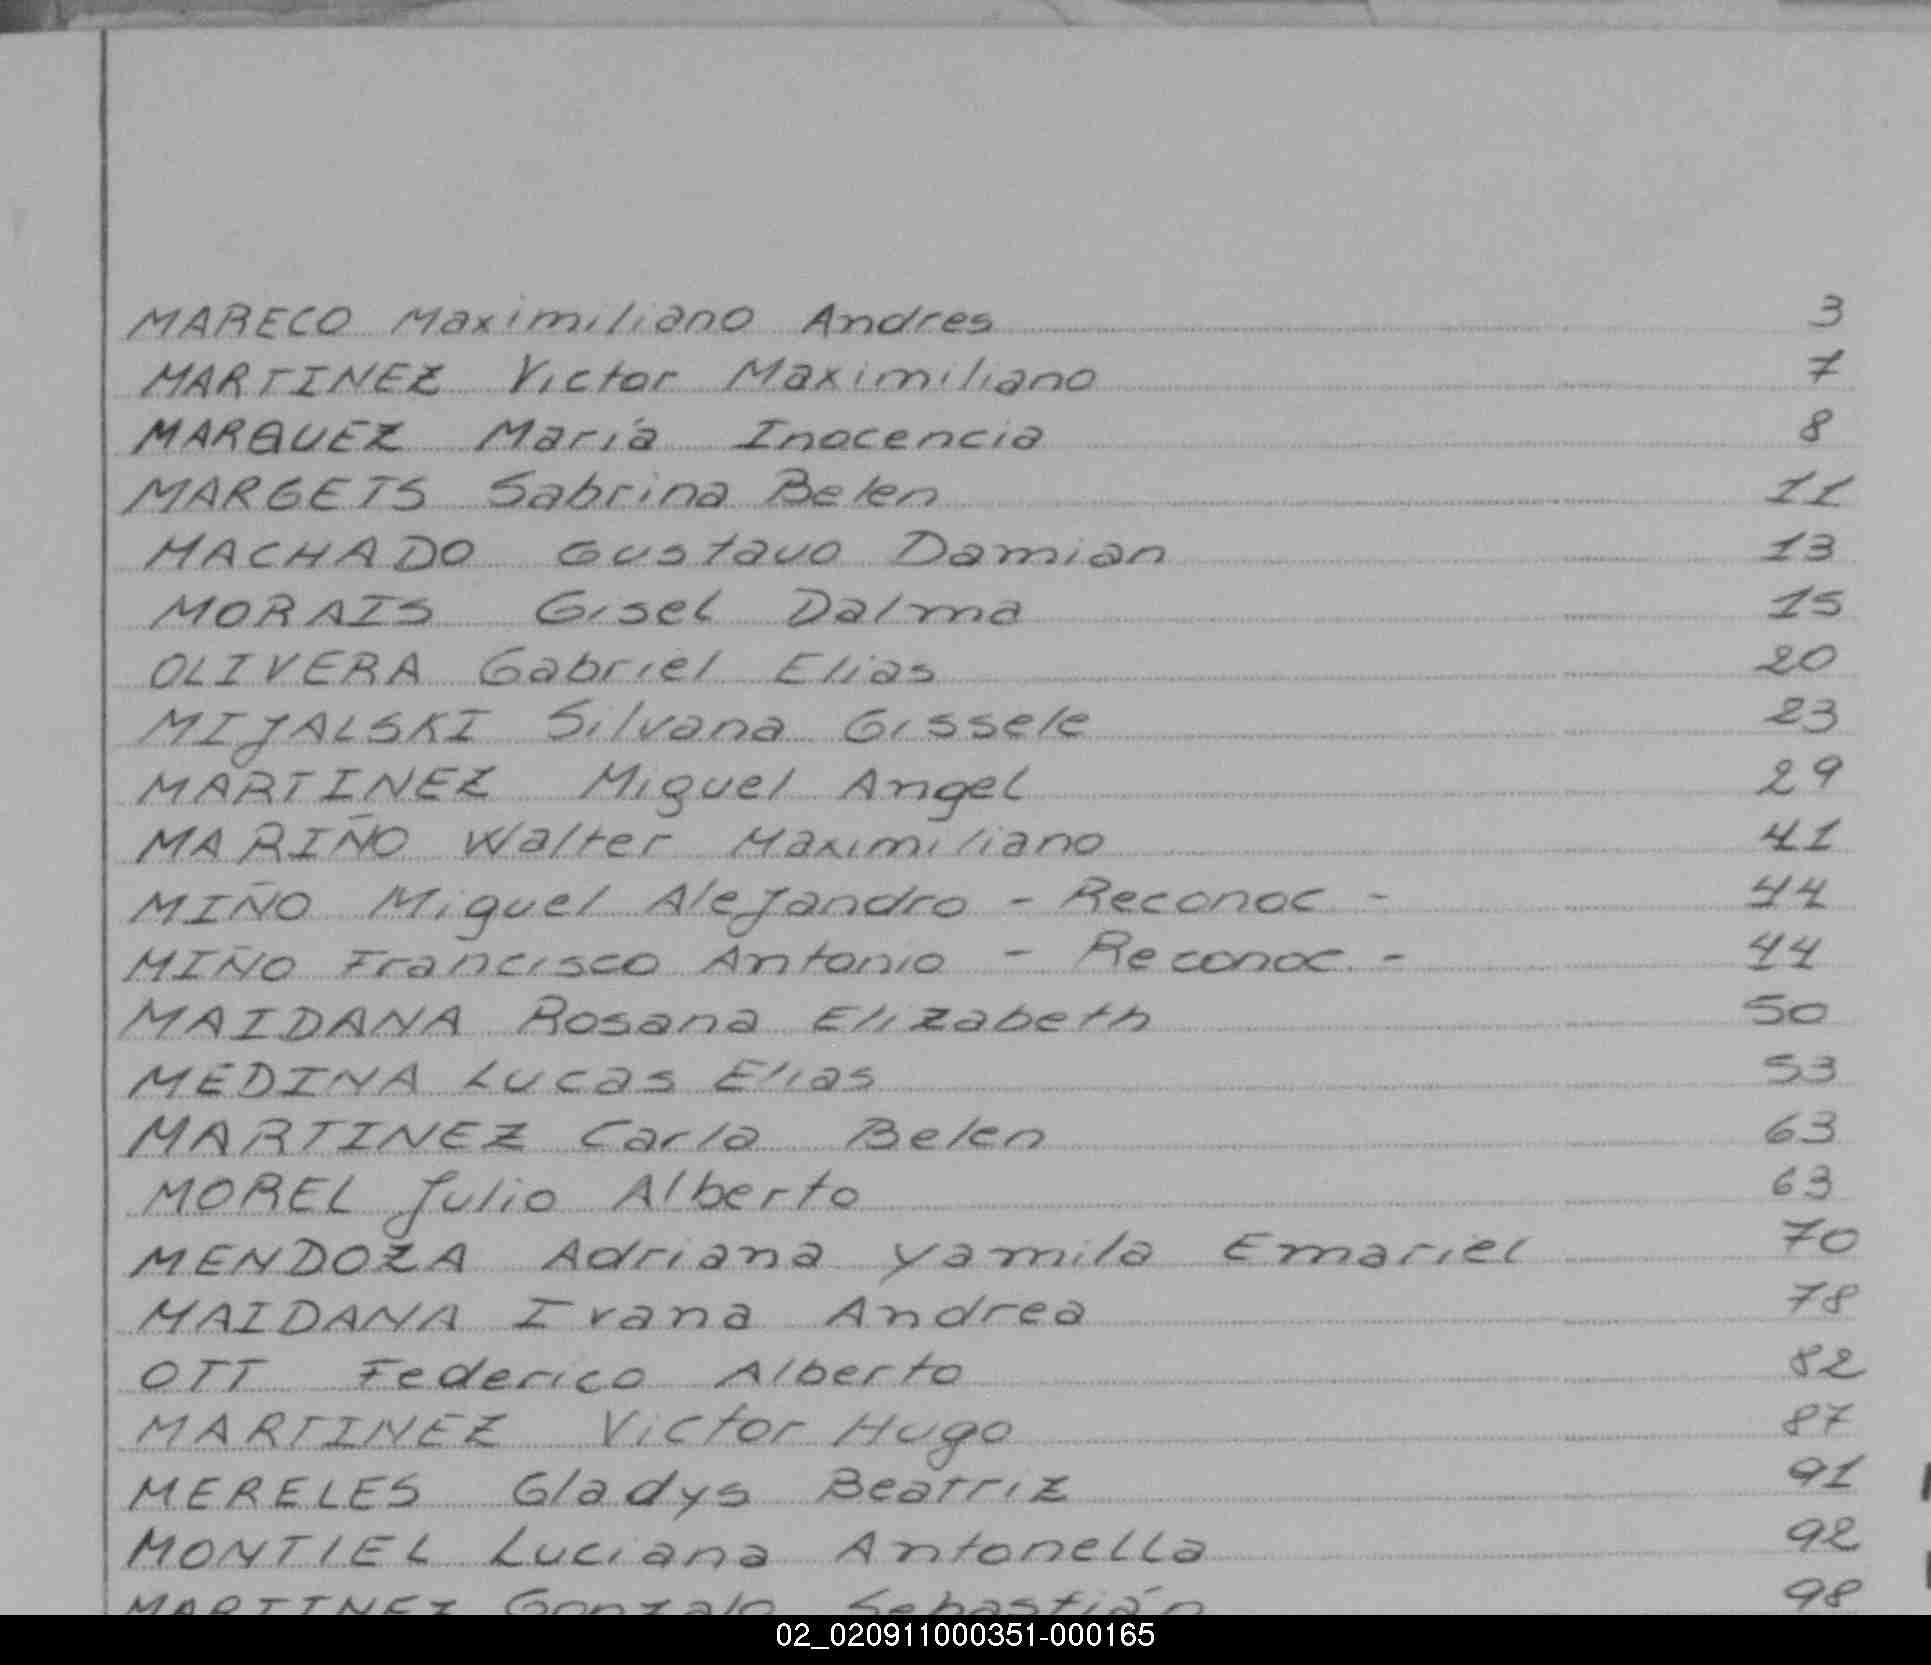 MARECO Maximiliano Andres 3
MARTINEZ Victor Maximiliano 7
MARQUEZ María Inocencia 8
MARGETS Sabrina Belen 11
MACHADO Gustavo Damian 13
MORAIS Gisel Dalma 15
OLIVERA Gabriel Elias 20
MIJALSKI Silvana Gissele 23
MARTINEZ Miguel Angel 29
MARIÑO Walter Maximiliano 41
MIÑO Miguel Alejandro - Reconoc - 44
MIÑO Francisco Antonio - Reconoc - 44
MAIDANA Rosana Elizabeth 50
MEDINA Lucas Elias 53
MARTINEZ Carla Belen 63
MOREL Julio Alberto 63
MENDOZA Adriana Yamila Emariel 70
MAIDANA Ivana Andrea 78
OTT Federico Alberto 82
MARTINEZ Victor Hugo 87
MERELES Gladys Beatriz 91
MONTIEL Luciana Antonella 92
MARTINEZ Gonzalo Sebastián 98
02_020911000351-000165